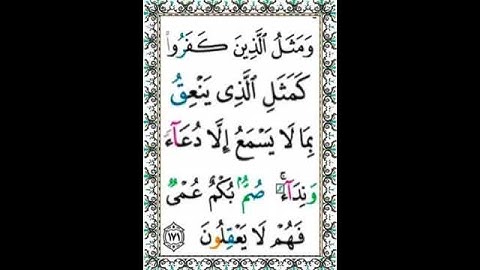 وَمَثَلُ ٱلَّذِينَ كَفَرُواْ
كَمَثَلِ ٱلَّذِى يَنْعِقُ
بِمَا لَا يَسْمَعُ إِلَّا دُعَآءً
وَنِدَآءً ۚ صُمٌّۢ بُكْمٌ عُمْىٌ
فَهُمْ لَا يَعْقِلُونَ ١٧١